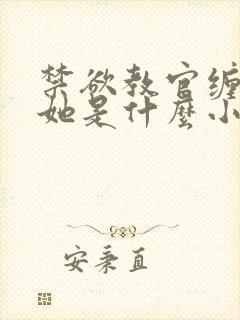 禁欲教官缠
她是什麼小
安秉直